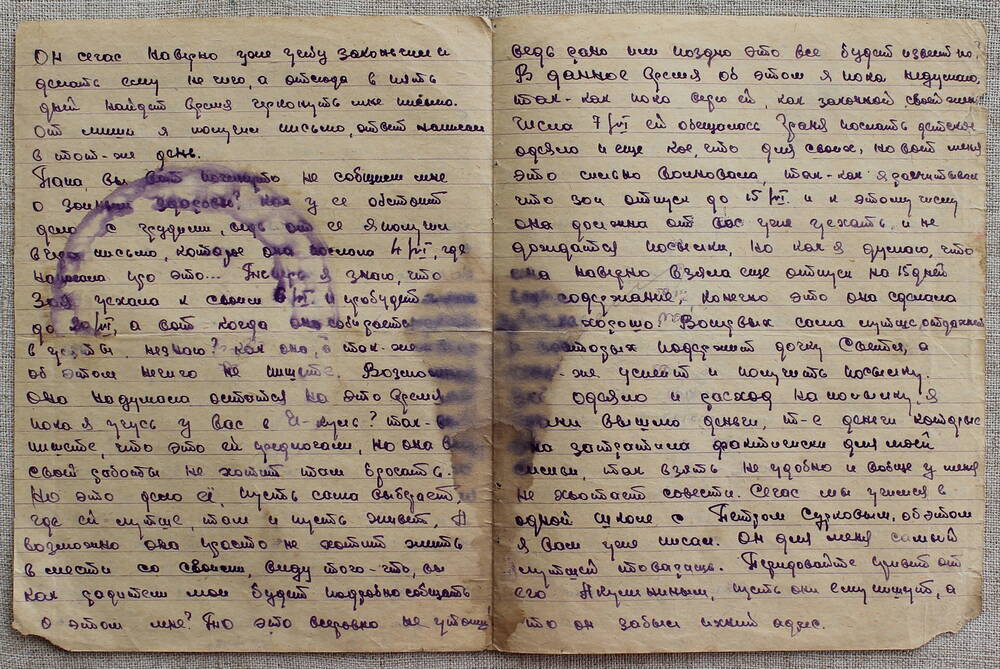 Он сегас наверно уже учебу закончил и
делать ему нечиго, а отсюда в пять
дней найдет время черконуть мне письмо.
От миши я получил письмо, ответ написал
в тот-же день.
Папа, вы вот почимуто не собщили мне
о зоиным здоровьи? Как у ее обстоит
дело с грудями, ведь от ее я получил
вчера письмо, которое она послала 4/VI, где
написала что это... Теперь я знаю, что
Зоя уехала к своим 6/VI и пробудит
до 20/VI, а вот когда она собирается
в незнаю? Как она, а так-же
об этом ничиго не пишете.
Она надумала остотся на это время
пока я учусь у вас в
пишете, что это ей предлогали, но она
своей работы не хотит там бросать.
Но это дело её, пусть сама выберает,
где ей лутше, там и пусть живет,
возможно она просто не хотит жить
в месте со своими, виду того-что, вы
как родители мои будит подробно собщать
о этом мне? Но это всеровно не утоиш
ведь рано или поздно это все будит извесно?
В данное время об этом я пока недумаю,
так-как пока верю ей, как законной своей жене
числа 7/VI ей обещалась Граня послать детское
одеяло и еще кое, что для своих, но вот меня
это сильно волновала, так-как я расчитывал
что зои отпуск до 15/VI и к этому числу
она должна от вас уже уехать, и не
дождатся посылки, но как я думаю, что
она наверно взяла еще отпуск на 15 дней
содержание, конечно это она сделала
хорошо? Вопервых сама лутше отдохнет
вовторых подержит дочку Светю, а
-же успеит и получить посылку.
одеяло и расход на посылку я
вышлю деньги, т-е деньги которые
она затратила фактически для моей
семьи, так взять не удобно и вобще у меня
не хватает совести. Сегас мы учимся в
одной школе с Петром Сурковым, об этом
я Вам уже писал. Он для меня самый
лутшей товарищь. Перидовайте привет от
его Акулининым, пусть они ему пишут, а
то он забыл ихний адрес.